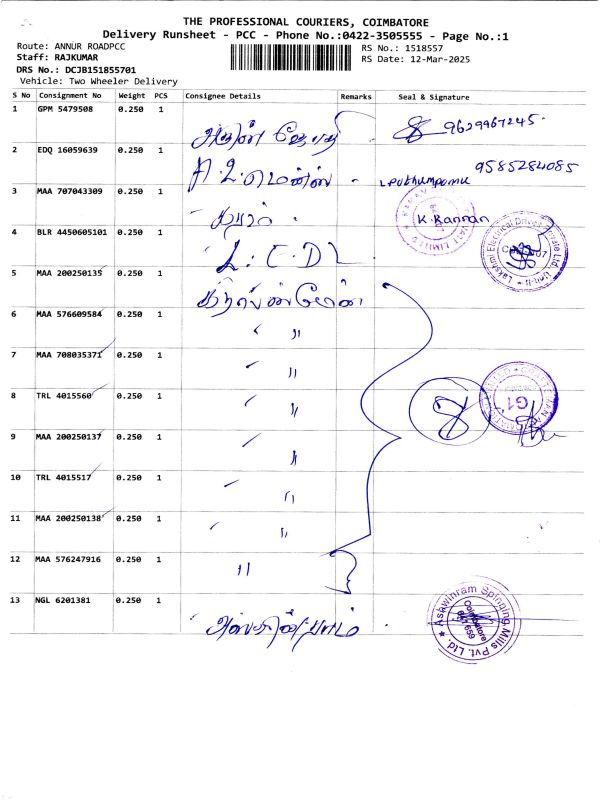 THE PROFESSIONAL COURIERS, COIMBATORE
Delivery Runsheet - PCC - Phone No.:0422-3505555 - Page No.:1
Route: ANNUR ROADPCC
RS No.: 1518557
Staff: RAJKUMAR
RS Date: 12-Mar-2025
DRS No.: DCJB151855701
Vehicle: Two Wheeler Delivery
S No Consignment No Weight PCS Consignee Details Remarks Seal & Signature
1 GPM 5479508 0.250 1 அருண் ஜோதி 9629967245
2 EDQ 16059639 0.250 1 9585284085
3 MAA 707043309 0.250 1 K. Kannan
4 BLR 4450605101 0.250 1 L.E.D Lakshmi Electrical Drives Private Ltd. Unit-II
5 MAA 200250135 0.250 1
6 MAA 576609584 0.250 1 "
7 MAA 708035371 0.250 1 "
8 TRL 4015560 0.250 1 "
9 MAA 200250137 0.250 1 "
10 TRL 4015517 0.250 1 "
11 MAA 200250138 0.250 1 "
12 MAA 576247916 0.250 1 "
13 NGL 6201381 0.250 1 Ashwinram Spinning Mills Pvt. Ltd. Coimbatore